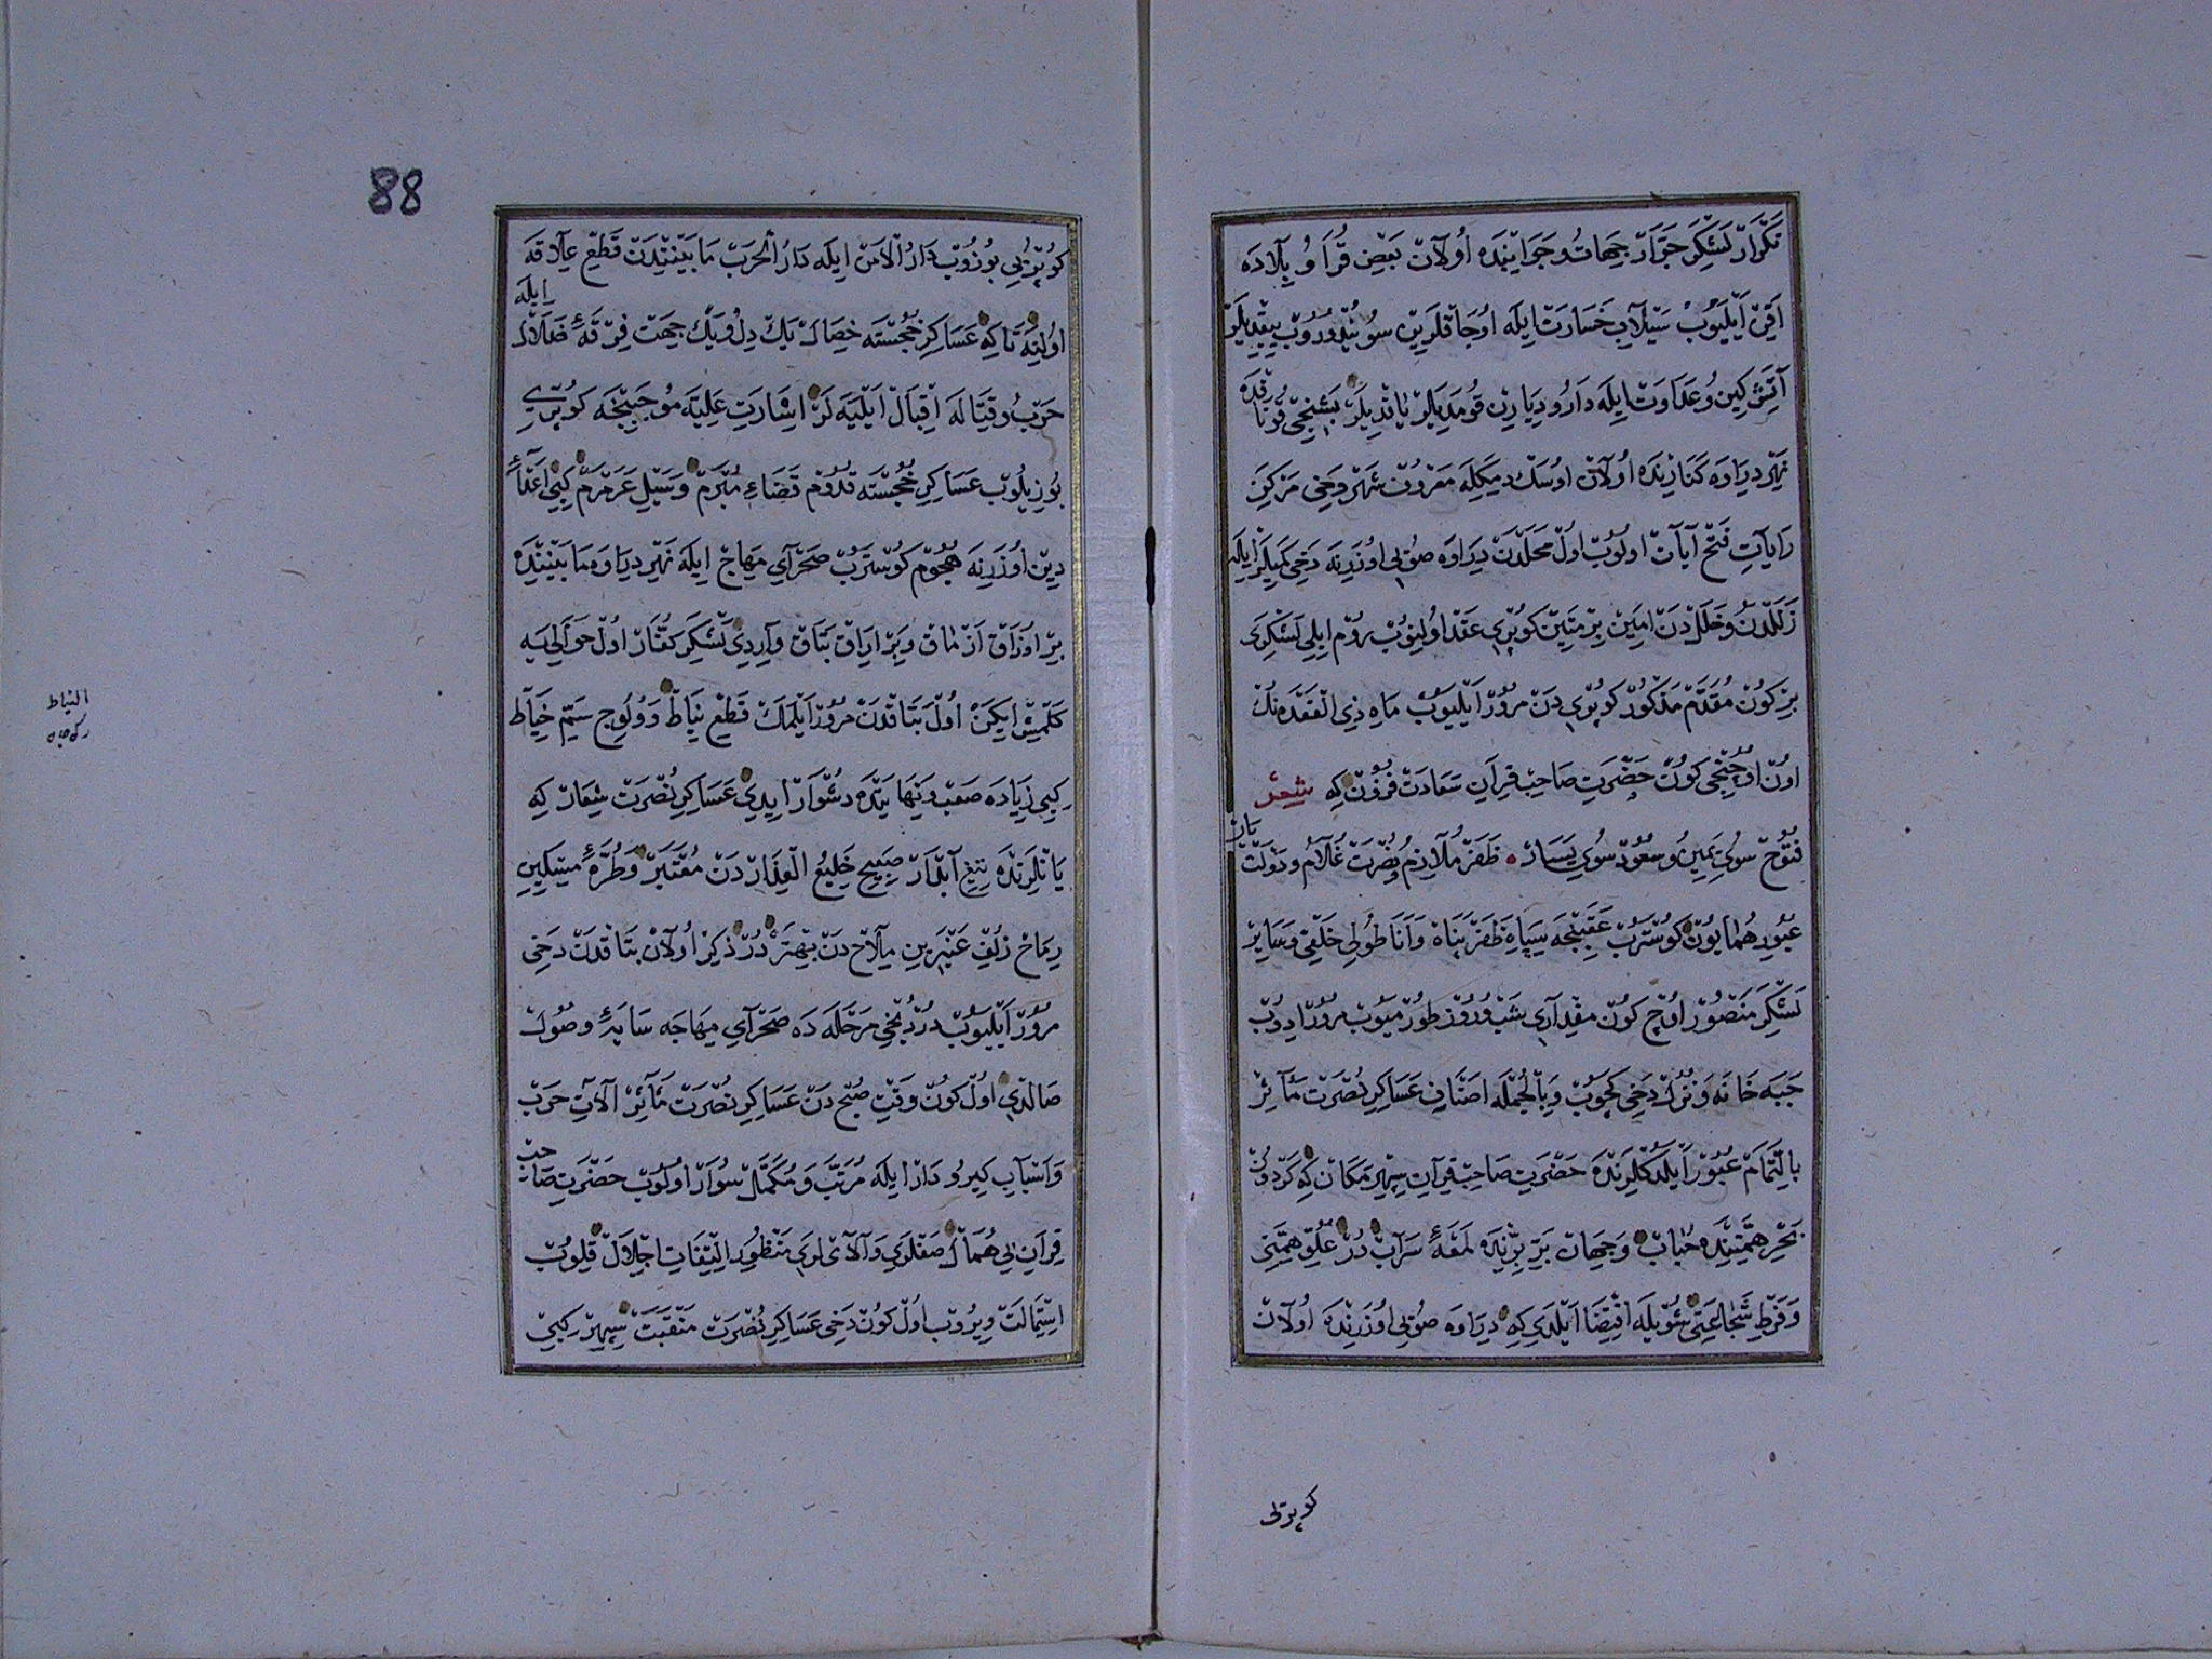 تكرار لشكر جرار جهات و جراينده اولان بعض قرا و بلاده
اقن ايليوب سيلاب خسارت ايله اوجاقلرين سويندوروب ييقديلر
آتش كين و عداوت ايله دار و ديارن قومديلر ياقديلر بشنجى قوناقده
نهر دراوه كنارنده اولان اوسك ديمكله معروف شهر دخى مركز
رايات فتح آيات اولوب اول محلدن دراوه صويى اوزرينه دخى كميلر ايله
زللدن و خللدن امين بر متين كوپرى عقد اولنوب روم ايلى لشكرى
بر كون مقدم مذكور كوپرى دن مرور ايليوب ماه ذى القعده نك
اون اوچنجى كون حضرت صاحب قران سعادت فزون كه شعر
فتوح سوى يمين و سعود سوى يسار ظفر ملازم و نصرت غلام و دولت يار
عبور همايون كوستروب عقبنجه سپاه ظفر پناه و اناطولى خلقى و ساير
لشكر منصور اوچ كون مقدارى شب و روز طورميوب مرور ايدوب
جبه خانه و نزل دخى كچوب و بالجمله اصناف عساكر نصرت مآثر
بالتمام عبور ايلدكلرنده حضرت صاحب قران سپهر مكان كه كردون
بحر همتنده حباب و جهان بر برنده لمعه سراب در علو همتى
و فرط شجاعتى شويله اقتضا ايلدى كه دراوه صويى اوزرنده اولان
كوپريلى
88
كوپريى بوزوب دار الامن ايله دار الحرب مابينندن قطع علاقه
اولنه تا كه عساكر خجسته خصال يك دل و يك جهت فرقه ضلال ايله
حرب و قتاله اقبال ايليه لر اشارت عليه موجبنجه كوپرى
بوزيلوب عساكر خجسته قدوم قضاء مبرم و سيل عرمرم كبى اعداء
دين اوزرينه هجوم كوستروب صحراى مهاج ايله نهر دراوه مابيننده
بر اوزاق ازماق و بر ايراق بتاق وار ايدى لشكر كفار اول حوالى يه
كلمش ايكن اول بتاقدن مرور ايلمك قطع نياط و ولوج سم خياط
كبى زياده صعب و نهايتده دشوار ايدى عساكر نصرت شعار كه
يانلرنده تيغ آبدار صبيح خليع العذار دن معتبر و طره مشكين
رماح زلف عنبرين ملاح دن بهتر در ذكر اولان بتاقدن دخى
مرور ايليوب دردنجى مرحله ده صحراى مهاجه سايه وصول
صالدى اول كون وقت صبح دن عساكر نصرت مآثر آلات حرب
و اسباب كير و دار ايله مرتب و مكمل سوار اولوب حضرت صاحب
قران بى همال صفلرى و آلايلرى منظور التفات اجلال قلوب
استمالت ويروب اول كون دخى عساكر نصرت منقبت سپهر كبى
النياط